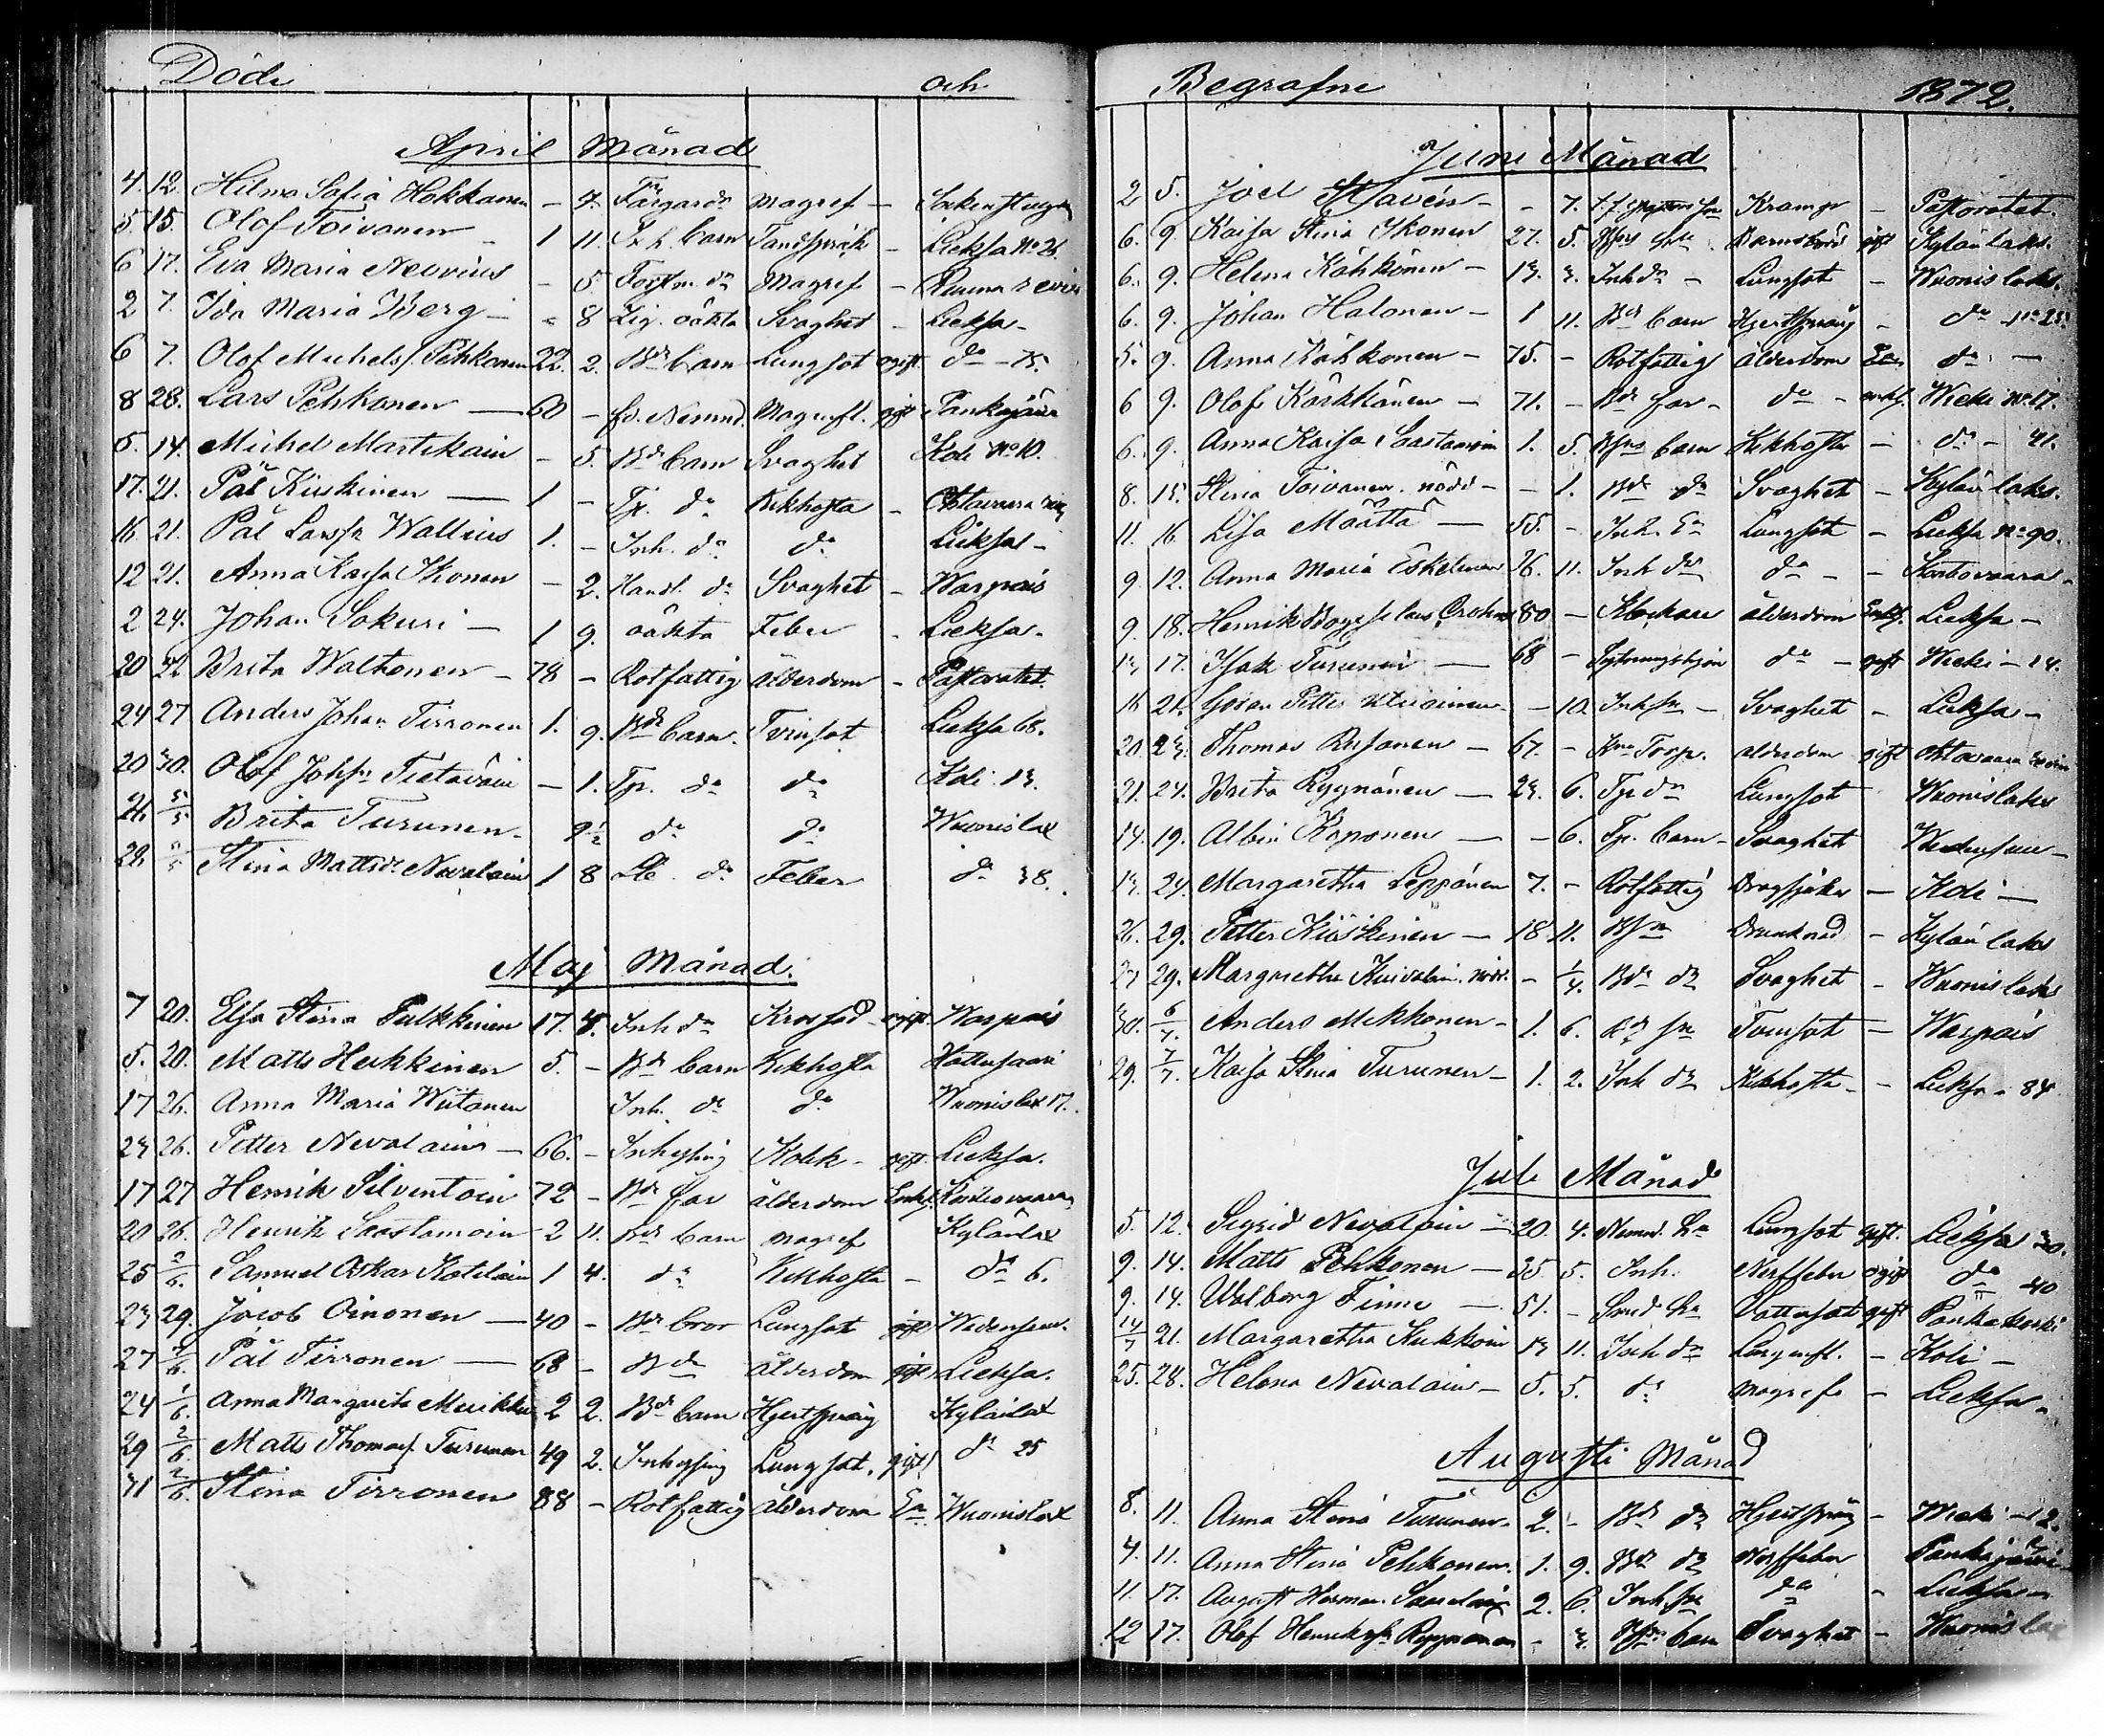 Döde och
April Månad
4. 12. Hilma Sofia Hokkanen - 7. Färgar dr Magref - 
5. 15. Olof Toivonen - 1 11. Inh. barn Tandspräck - Lieksa No 26.
6 17. Eva Maria Neovius - 5. Forstm. dr Magref -
2 7. Ida Maria Berg - - 8 Lig. oäkta Svaghet - Lieksa -
6 7. Olof Michelsf. Pehkonen 22. 2. Bde barn Lungsot ogift do - 75.
8 28. Lars Pehkonen - 60 - fd. Nemnd. Maginfl. gift Pankajärvi
5. 14. Michel Martikain - 5. Bde barn Svaghet Koli No 10.
17. 21. Pål Kiiskinen - 1 - Tp. do Kikhosta -
16 21. Pål Larsf. Wallius 1. - Inh. do do Lieksa -
12 21. Anna Kaisa Ikonen - 2. Handl. do Svaghet - Warpais
2 24. Johan Sokuri - 1 9. oäkta Feber - Lieksa -
20 Brita Walkonen - 78 - Rotfattig ålderdom - Pastoratet.
24 27 Anders Johan Tirronen 1. 9. Bde barn. Tvinsot Lieksa 68.
20 30. Olof Johsn Tietäväin - 1. Tp. do do Koli 13.
26. 5/5 Brita Turunen - 9 1/2 do do Wuonislax
28. 5/5 Stina Mattsdr Nevalain 1 8 do Feber do 38.
Maj Månad.
7 20. Elsa Stina Pulkkinen 17. 8. Inh dr ogift Warpais
5. 20. Matts Heikkinen 5. - Bde barn Kikhosta Hattusaari
17 26. Anna Maria Wiitanen Inh. do do Wuonislax 17.
23 26. Petter Nevalain - 66. - Inhysing Kolik - gift. Lieksa.
17 27 Henrik Silventoin 72 - Bde far ålderdom Enkl. Kontiovaara
20 26. Henrik Saastamoin - 2 11. Bde barn magref Kylänlax
25 2/6. Samuel Oskar Kotilain 1 4. do Kikhosta - do 6.
23 29. Jacob Oinonen - 40 - Bde bror Lungsot gift
27 2/6. Pål Tirronen - 68 - Bde ålderdom gift Lieksa.
24 1/6. Anna Margareta Merikkä 2 2. Bde barn Hjertsprång Kylänlax
29 2/6. Matts Thomasf. Turunen 49 2. Inhysing Lungsot, gift do 25
31 2/6. Stina Tirronen 88 - Rotfattig ålderdom Ea Wuonislax
Begrafne 1872.
Juni Månad
2 5. Joel - - 7. Kramp - Pastoratet.
6. 9. Kaisa Stina Ikonen 27. 5. Barnsbörd gift Kylänlaks.
6. 9. Helena Kähkönen - 13. 3. Inh dr - Lungsot - Wuonislaks.
6. 9. Johan Halonen - 1 11. Bde barn Hjertsprång - do No 25.
5. 9. Anna Kähkönen - 75. - Rotfattig ålderdom Ea do -
6 9. Olof Kärkkänen - 71. - Bde far - do - enkl. Wieki No 17.
6. 9. Anna Kaisa Saastamoin 1. 5. barn Kikhosta - do - 41.
8. 15. Stina Toivanen nödd - - 1. Bde do Svaghet - Kylänlaks.
11. 16. Lisa Määttä - 55. - Inh. Ea Lungsot - Lieksa No 90.
9. 12. Anna Maria Eskelinen 26. 11. Inh dr do - - Kontiovaara -
9. 18. Henrik 80 - Klockare ålderdom Enkl. Lieksa -
13 17. Isak Turunen - 68 - do - gift Wieki - 14.
16 21. Göran Petter - 10. Inh sn - Svaghet - Lieksa -
20. 23. Thomas Rusanen - 67. - Torp. ålderdom gift
21. 24. Brita Ryynänen - 23. 6. Tp dr Lungsot Wuonislaks
14. 19. Albin Koponen - - 6. Tp. barn - Svaghet
13. 24. Margaretha Leppänen 7. - Rotfattig - Koli -
26. 29. Petter Kiiskinen - 18 11. Drunknad - Kylänlaks
27 29. Margaretha nödd. - 1/4. Bde dr Svaghet - Wuonislaks
30. 6/7. Anders Mikkonen - 1. 6. Bde sn Tvinsot - Warpais
29. 7/7. Kaisa Stina Turunen - 1. 2. Inh dr Kikhosta - - Lieksa - 84
Juli Månad
5. 12. Sigrid Nevalain - 20. 4. Nemnd. hu Lungsot gift. Lieksa 30.
9. 14. Matts Pehkonen - 35 5. Inh. Nerffeber ogift do 40
9. 14. Walborg Finne - 51. - Smed hu Vattusot gift Pankakoski
14/7 21. Margaretha 13 11. Inh dr - Koli -
25. 28. Helena Nevalain - 5. 5. do magref - Lieksa -
Augusti Månad
8. 11. Anna Stina Turunen - 2. - Bde dr Hjertsprång - Wieki - 12.
4. 11. Anna Stina Pehkonen. 1. 9. Bde dr Nerffeber Pankajärvi -
11. 17. August Herman 2. 6. Inh. sn do - Lieksa -
12 17. Olof Henriksfn - 3. barn Svaghet - Wuonislax